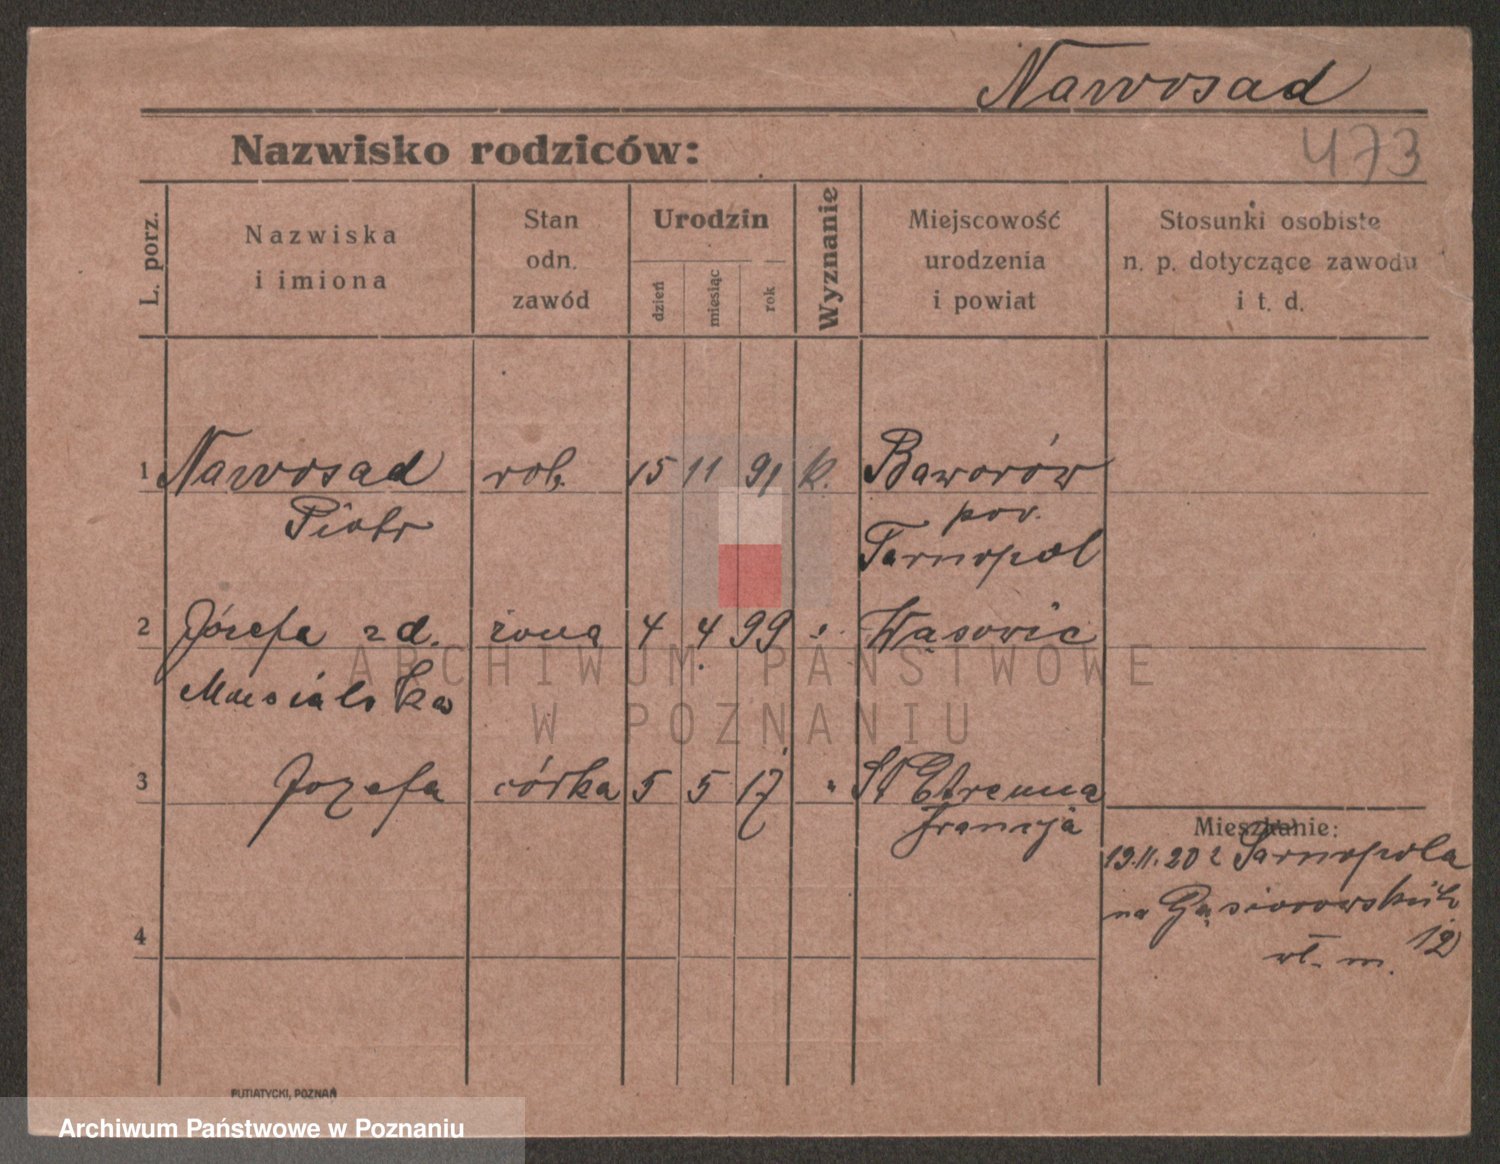 Nawosad
473
Nazwisko rodziców:
L. porz.
Nazwiska
i imiona
Stan
odn.
zawód
Urodzin
dzień
miesiąc
rok
Wyznanie
Miejscowość
urodzenia
i powiat
Stosunki osobiste
n. p. dotyczące zawodu
i t. d.
1 Nawosad rob. 15 11 91 k. Baworów
Piotr pow.
Tarnopol
2 Józefa zd. żona 4 4 99 " Wąsowie
Musialska
3 Jozefa córka 5 5 17 " St Etienna
Francja
Mieszkanie:
19.11.20 z Tarnopola
na Gąsiorowskich
12
wł. m.
4
PUTIATYCKI, POZNAŃ
ARCHIWUM PAŃSTWOWE
W POZNANIU
Archiwum Państwowe w Poznaniu